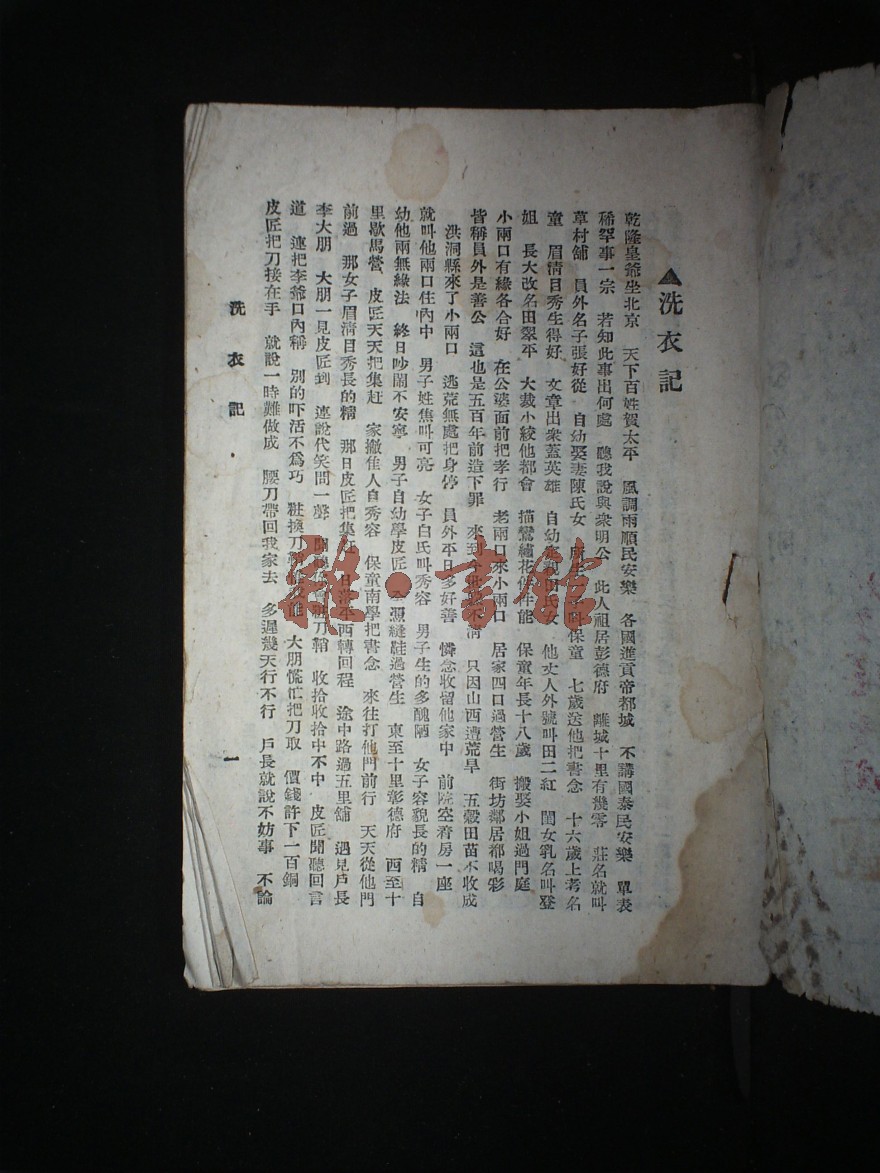 ▲洗衣記
乾隆皇爺坐北京　天下百姓賀太平　風調雨順民安樂　各國進貢帝都城　不講國泰民安樂　單表
稀罕事一宗　若知此事出何處　聽我說與衆明公　此人祖居彭德府　離城十里有幾零　莊名就叫
草村舖　員外名子張好從　自幼娶妻陳氏女　子叫保童　七歲送他把書念　十六歲上考名
童　眉淸目秀生得好　文章出衆蓋英雄　自幼氏女　他丈人外號叫田二紅　閨女乳名叫登
姐　長大改名田翠平　大裁小絞他都會　描鸞繡花件件能　保童年長十八歲　搬娶小姐過門庭
小兩口有緣各合好　在公婆面前把孝行　老兩口來小兩口　居家四口過營生　街坊鄰居都喝彩
皆稱員外是善公　這也是五百年前造下罪　來到不淸　只因山西遭荒旱　五穀田苗不收成
洪洞縣來了小兩口　逃荒無處把身停　員外平日多好善　憐念收留他家中　前院空着房一座
就叫他兩口住內中　男子姓焦叫可亮　女子白氏叫秀容　男子生的多醜陋　女子容貌長的精　自
幼他兩無緣法　終日吵鬧不安寧　男子自幼學皮匠　全憑縫鞋過營生　東至十里彰德府　西至十
里歇馬營　皮匠天天把集赶　家撇佳人自秀容　保童南學把書念　來往打他門前行　天天從他門
前過　那女子眉淸目秀長的精　那日皮匠把集赶　日落平西轉回程　途中路過五里舖　遇見戶長
李大朋　大朋一見皮匠到　連說代笑問一聲　刀鞘　收拾收拾中不中　皮匠聞聽回言
道　連把李爺口內稱　別的吓活不爲巧　粧換刀能　大朋慌忙把刀取　價錢許下一百銅
皮匠把刀接在手　就說一時難做成　腰刀帶回我家去　多遲幾天行不行　戶長就說不妨事　不論
洗衣記
一
雅·書館